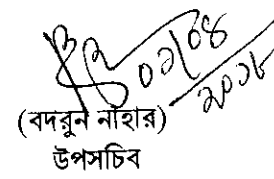 ০২/০৪
২০১৮
(বদরুন নাহার)
উপসচিব